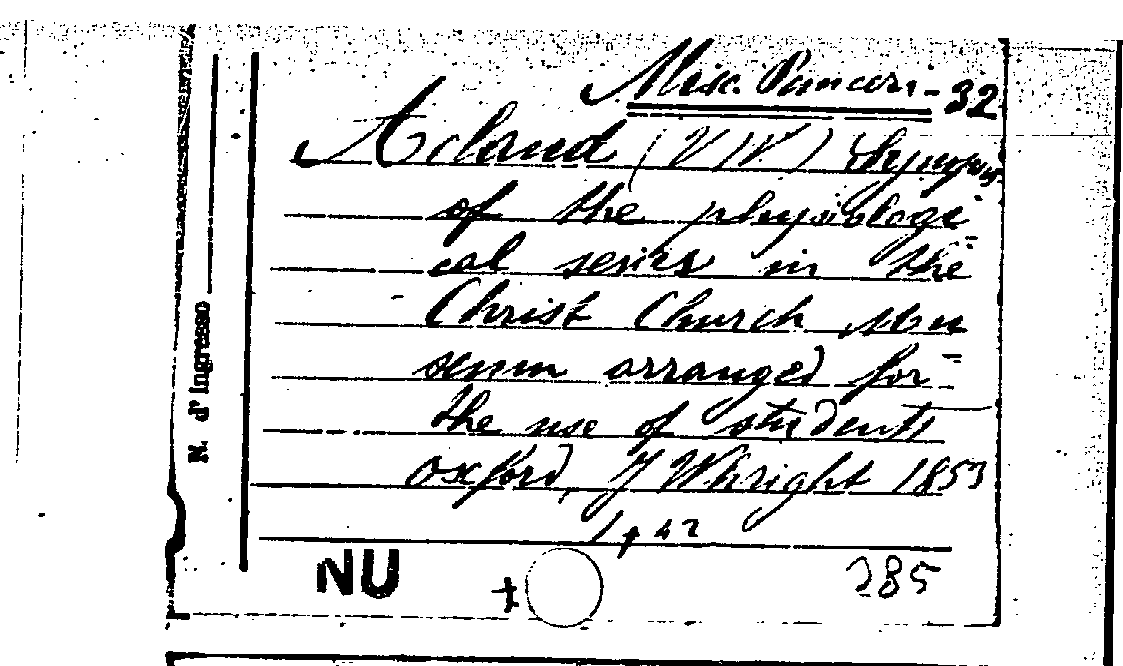 Misc. Panceri - 32
Acland (V W) Synopsis
of the physiologi-
cal series in the
Christ Church Mu
seum arranged for
the use of students
oxford, J Whright 1853
285
N. d'Ingresso
NU